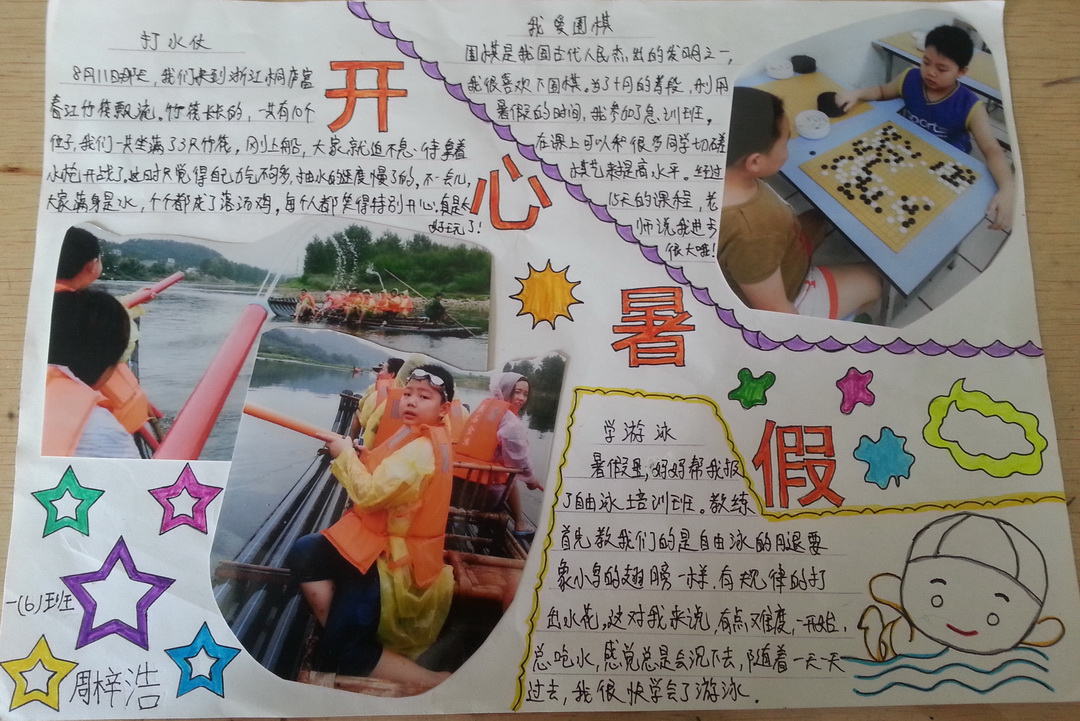 打水仗
8月11日那天，我们来到浙江桐庐富
春江竹筏飘流。竹筏长长的，一共有10个
位子，我们一共坐满了3只竹筏，刚上船，大家就迫不急待拿着
水枪开战了。这时只觉得自己力气不够多，抽水的速度慢了的。不一会儿，
大家满身是水，个个都成了落汤鸡，每个人都笑得特别开心，真是太
好玩了！
开心暑假
我爱围棋
围棋是我国古代人民杰出的发明之一，
我很喜欢下围棋。为了十月的考段，利用
暑假的时间，我参加了急训班。
在课上可以和很多同学切磋
棋艺来提高水平。经过
15天的课程，老
师说我进步
很大哦！
学游泳
暑假里，好好帮我报
了自由泳培训班。教练
首先教我们的是自由泳的用退要
象小鸟的翅膀一样，有规律的打
出水花。这对我来说，有点难度，一开始，
总吃水，感觉总是会沉下去，随着一天一天
过去，我很快学会了游泳.
一(七)班
周梓浩